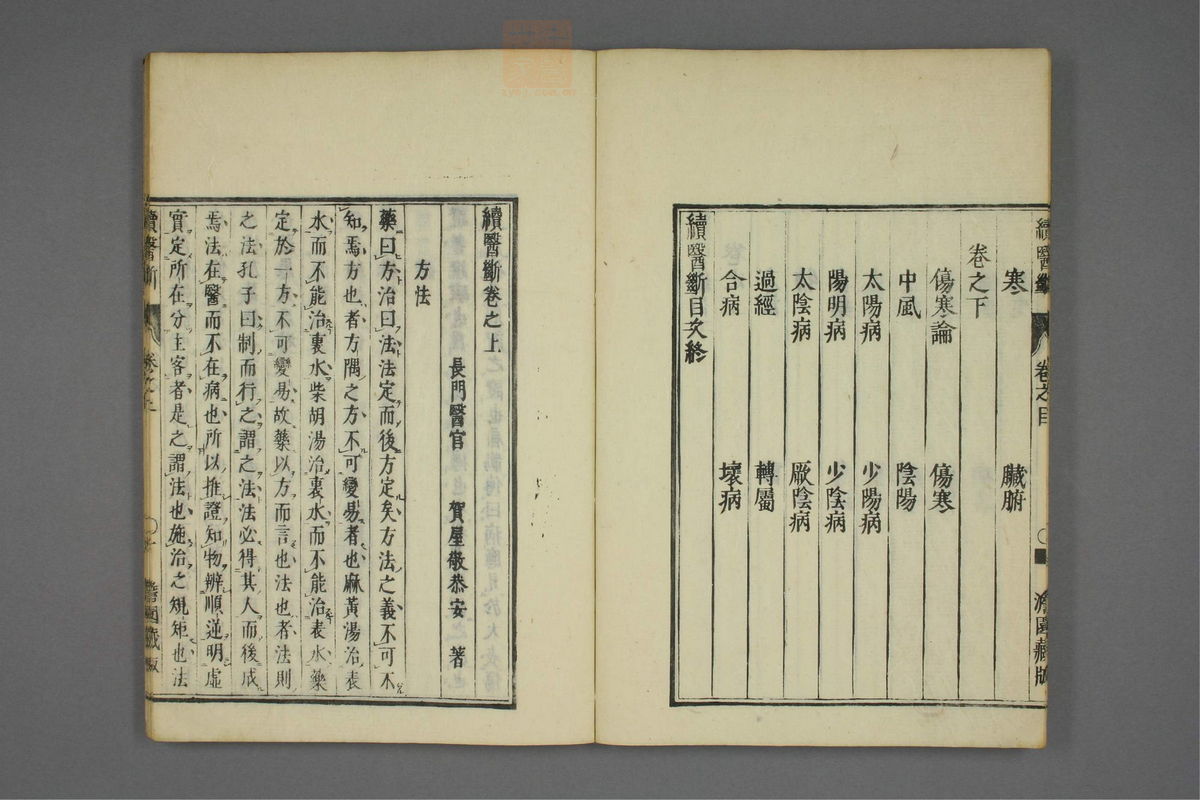 續醫斷 卷之目 澹園藏版
寒 臟腑
卷之下
傷寒論 傷寒
中風 陰陽
太陽病 少陽病
陽明病 少陰病
太陰病 厥陰病
過經 轉屬
合病 壞病
續醫斷目次終
續醫斷卷之上
長門醫官 賀屋敬恭安 著
方法
藥曰方治曰法法定而後方定矣方法之義不可不
知焉方也者方隅之方不可變易者也麻黃湯治表
水而不能治裏水柴胡湯治裏水而不能治表水藥
定於一方不可變易故藥以方而言也法也者法則
之法孔子曰制而行之謂之法法必得其人而後成
焉法在醫而不在病也所以推證知物辨順逆明虛
實定所在分主客者是之謂法也施治之規矩也法
續醫斷 卷之上 藏版